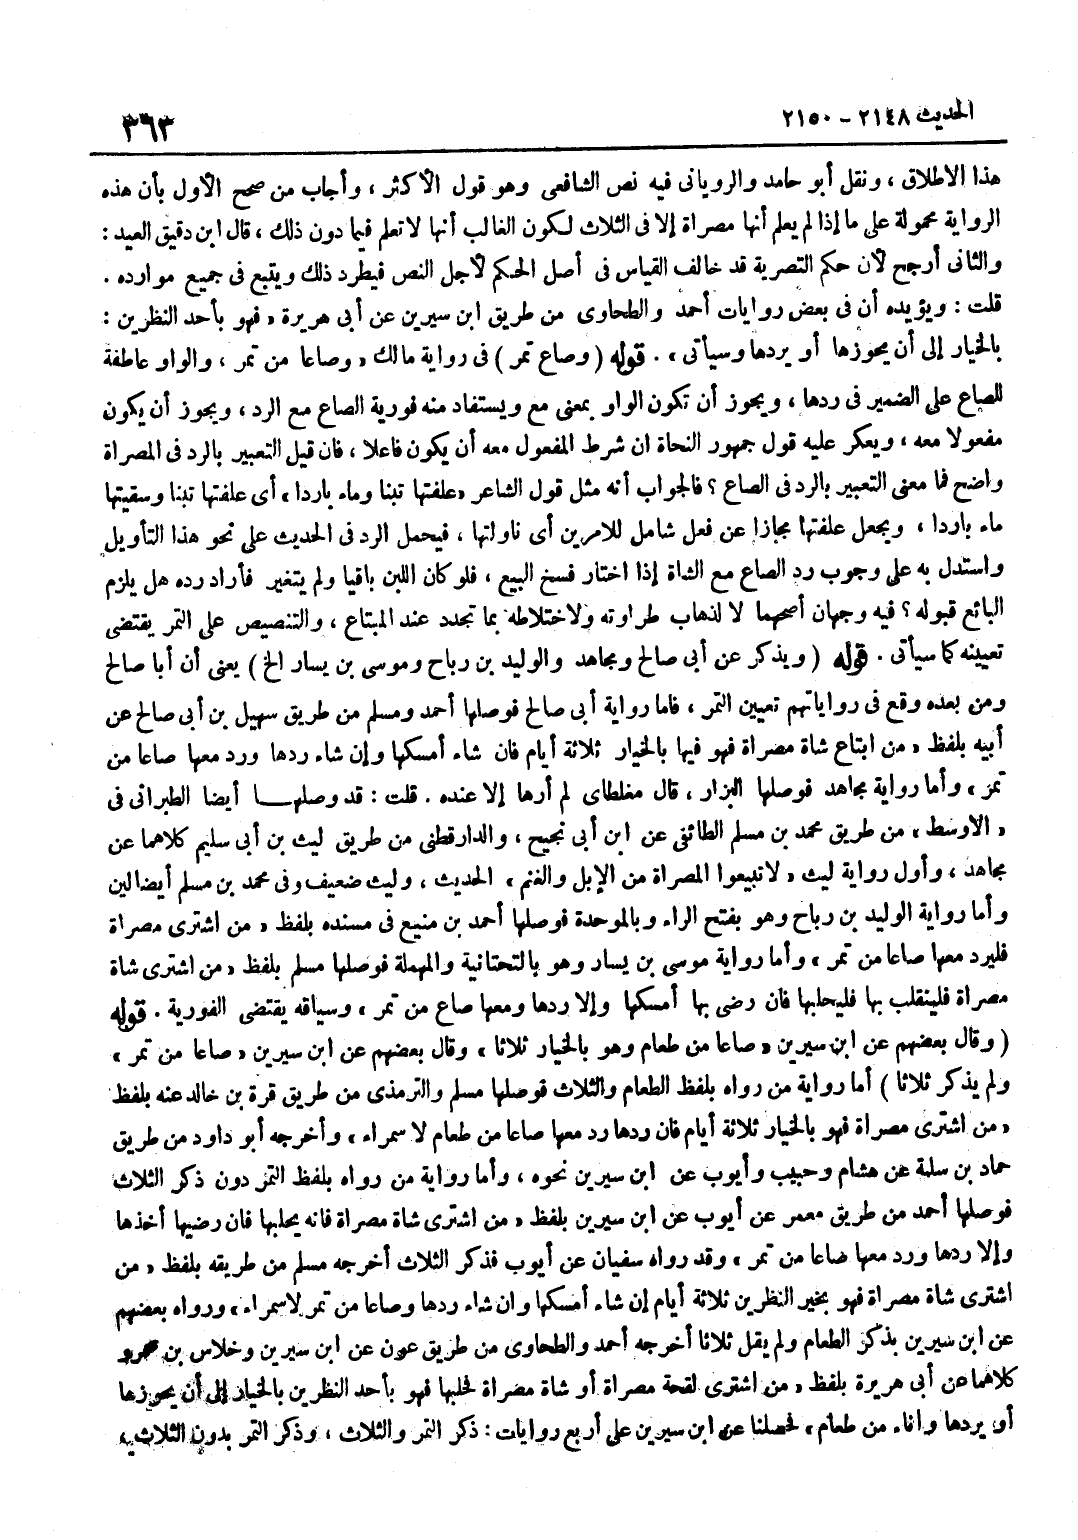 الحديث ٢١٤٨ - ٢١٥٠
٣٦٣
هذا الاطلاق ، ونقل أبو حامد والرويانى فيه نص الشافعى وهو قول الأكثر ، وأجاب من صحح الأول بأن هذه
الرواية محمولة على ما إذا لم يعلم أنها مصراة إلا فى الثلاث لكون الغالب أنها لا تعلم فيما دون ذلك ، قال ابن دقيق العيد :
والثانى أرجح لأن حكم التصرية قد خالف القياس فى أصل الحكم لأجل النص فيطرد ذلك ويتبع فى جميع موارده .
قلت : ويؤيده أن فى بعض روايات أحمد والطحاوى من طريق ابن سيرين عن أبى هريرة « فهو بأحد النظرين :
بالخيار إلى أن يحوزها أو يردها وسيأتى » . قوله ( وصاع تمر ) فى رواية مالك « وصاعا من تمر ، والواو عاطفة
للصاع على الضمير فى ردها ، ويجوز أن تكون الواو بمعنى مع ويستفاد منه فورية الصاع مع الرد ، ويجوز أن يكون
مفعولا معه ، ويعكر عليه قول جمهور النحاة ان شرط المفعول معه أن يكون فاعلا ، فان قيل التعبير بالرد فى المصراة
واضح فما معنى التعبير بالرد فى الصاع ؟ فالجواب أنه مثل قول الشاعر «علفتها تبنا وماء باردا» أى علفتها تبنا وسقيتها
ماء باردا ، ويجعل علفتها مجازا عن فعل شامل للامرين أى ناولتها ، فيحمل الرد فى الحديث على نحو هذا التأويل
واستدل به على وجوب رد الصاع مع الشاة إذا اختار فسخ البيع ، فلو كان اللبن باقيا ولم يتغير فأراد رده هل يلزم
البائع قبوله ؟ فيه وجهان أصحهما لا لذهاب طراوته ولاختلاطه بما تجدد عند المبتاع ، والتنصيص على التمر يقتضى
تعيينه كما سيأتى . قوله ( ويذكر عن أبى صالح ومجاهد والوليد بن رباح وموسى بن يسار الخ ) يعنى أن أبا صالح
ومن بعده وقع فى رواياتهم تعيين التمر ، فاما رواية أبى صالح فوصلها أحمد ومسلم من طريق سهيل بن أبى صالح عن
أبيه بلفظ « من ابتاع شاة مصراة فهو فيها بالخيار ثلاثة أيام فان شاء أمسكها وإن شاء ردها ورد معها صاعا من
تمر » وأما رواية مجاهد فوصلها البزار ، قال مغلطاى لم أرها إلا عنده . قلت : قد وصلها أيضا الطبرانى فى
« الاوسط » من طريق محمد بن مسلم الطائفى عن ابن أبى نجيح ، والدارقطنى من طريق ليث بن أبى سليم كلاهما عن
مجاهد ، وأول رواية ليث « لا تبيعوا المصراة من الإبل والغنم » الحديث ، وليث ضعيف وفى محمد بن مسلم أيضا لين
وأما رواية الوليد بن رباح وهو بفتح الراء وبالموحدة فوصلها أحمد بن منيع فى مسنده بلفظ « من اشترى مصراة
فليرد معها صاعا من تمر » وأما رواية موسى بن يسار وهو بالتحتانية والمهملة فوصلها مسلم بلفظ « من اشترى شاة
مصراة فلينقلب بها فليحلبها فان رضى بها أمسكها وإلا ردها ومعها صاع من تمر » وسياقه يقتضى الفورية . قوله
( وقال بعضهم عن ابن سيرين « صاعا من طعام وهو بالخيار ثلاثا » وقال بعضهم عن ابن سيرين « صاعا من تمر »
ولم يذكر ثلاثا ) أما رواية من رواه بلفظ الطعام والثلاث فوصلها مسلم والترمذى من طريق قرة بن خالد عنه بلفظ
« من اشترى مصراة فهو بالخيار ثلاثة أيام فان ردها رد معها صاعا من طعام لا سمراء » وأخرجه أبو داود من طريق
حماد بن سلمة عن هشام وحبيب وأيوب عن ابن سيرين نحوه ، وأما رواية من رواه بلفظ التمر دون ذكر الثلاث
فوصلها أحمد من طريق معمر عن أيوب عن ابن سيرين بلفظ « من اشترى شاة مصراة فانه يحلبها فان رضيها أخذها
وإلا ردها ورد معها صاعا من تمر » وقد رواه سفيان عن أيوب فذكر الثلاث أخرجه مسلم من طريقه بلفظ « من
اشترى شاة مصراة فهو بخير النظرين ثلاثة أيام إن شاء أمسكها وان شاء ردها وصاعا من تمر لا سمراء » ورواه بعضهم
عن ابن سيرين بذكر الطعام ولم يقل ثلاثا أخرجه أحمد والطحاوى من طريق عون عن ابن سيرين وخلاس بن عمرو
كلاهما عن أبى هريرة بلفظ « من اشترى لقحة مصراة أو شاة مصراة فحلبها فهو بأحد النظرين بالخيار إلى أن يحوزها
أو يردها وإناء من طعام » فحصلنا عن ابن سيرين على أربع روايات : ذكر التمر والثلاث ، وذكر التمر بدون الثلاث ،